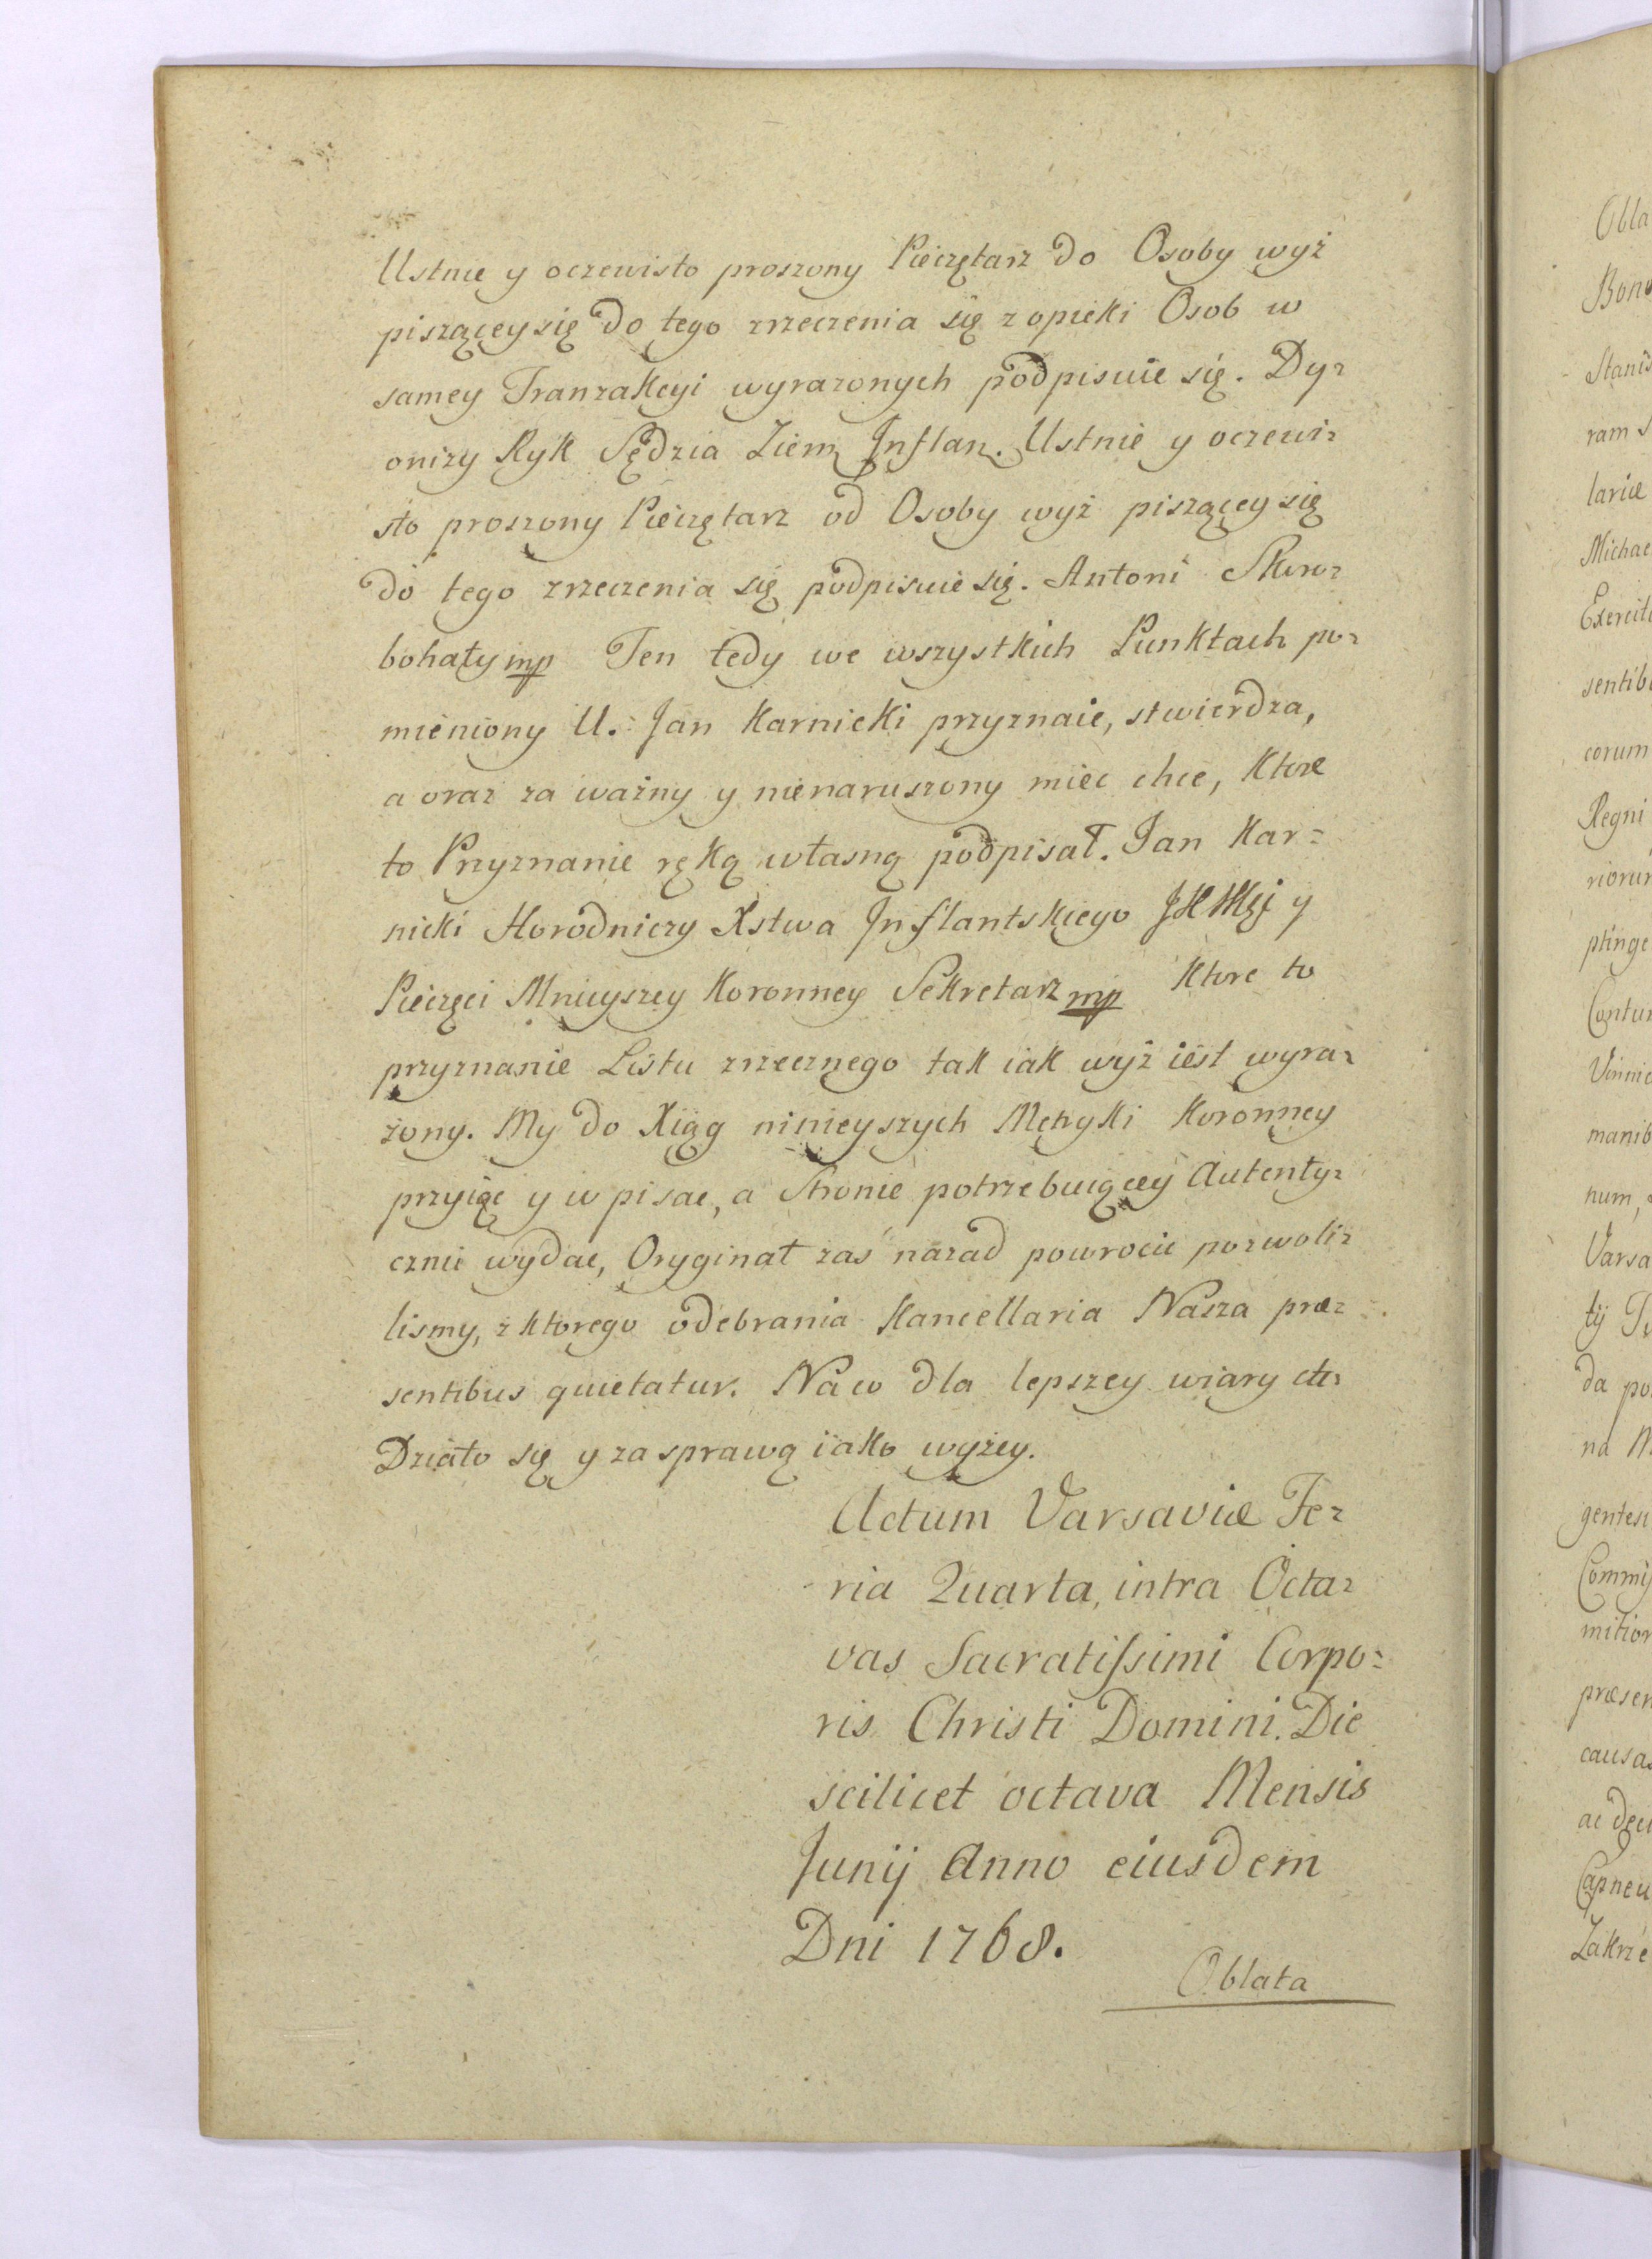 Ustnie y oczewisto proszony Pieczętarz do Osoby wyż
piszącey się do tego zrzeczenia się z opieki Osob w
samey Tranzakcyi wyrazonych podpisuie się. Dy=
onizy Ryk Sędzia Ziem Inflan. Ustnie y oczewi=
sto proszony Pieczętarz od Osoby wyż piszącey się
do tego zrzeczenia się podpisuie się. Antoni Skuro=
bohaty mp Ten tedy we wszystkich Punktach po=
mieniony U. Jan Karnicki przyznaie, stwierdza,
a oraz za ważny y nienaruszony miec chce, Ktore
to Przyznanie ręką własną podpisał. Jan Kar=
nicki Horodniczy Xstwa Inflantskiego JKMCi y
Pieczęci Mnieyszey Koronney Sekretarz mp Ktore to
przyznanie Listu zrzecznego tak iak wyż iest wyra=
żony. My do Xiąg ninieyszych Metryki Koronney
przyiąc y wpisac, a Stronie potrzebuiącey Autenty=
cznie wydac, Oryginał zaś nazad powrocic pozwoli=
lismy, z ktorego odebrania Kancellaria Nasza præ=
sentibus quietatur. Na co dla lepszey wiary etc
Działo się y za sprawą iako wyżey.
Actum Varsaviæ Fe=
ria Quarta, intra Octa=
vas Sacratissimi Corpo=
ris Christi Domini. Die
scilicet octava Mensis
Junij Anno eiusdem
Dni 1768.
Oblata
Obla
Bono
Stanis
ram
lariæ
Michae
Exercit
sentib
corum
Regni
rioru
ptinge
Contu
manib
num,
Varsa
tij
da po
na
gentes
Commis
mitior
præsen
causas
ac
Zakrze